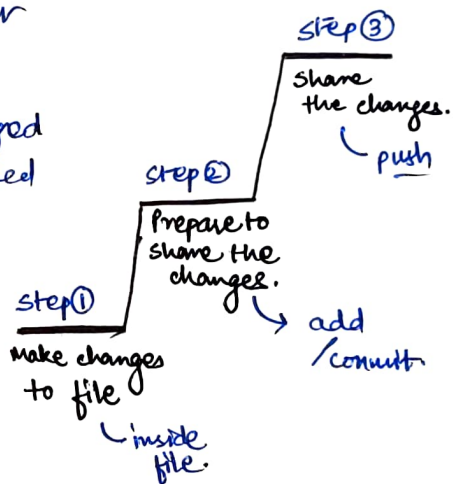 step ③
share
the changes.
push
step ②
Prepare to
share the
changes.
add
/commit
step ①
Make changes
to file
inside
file.